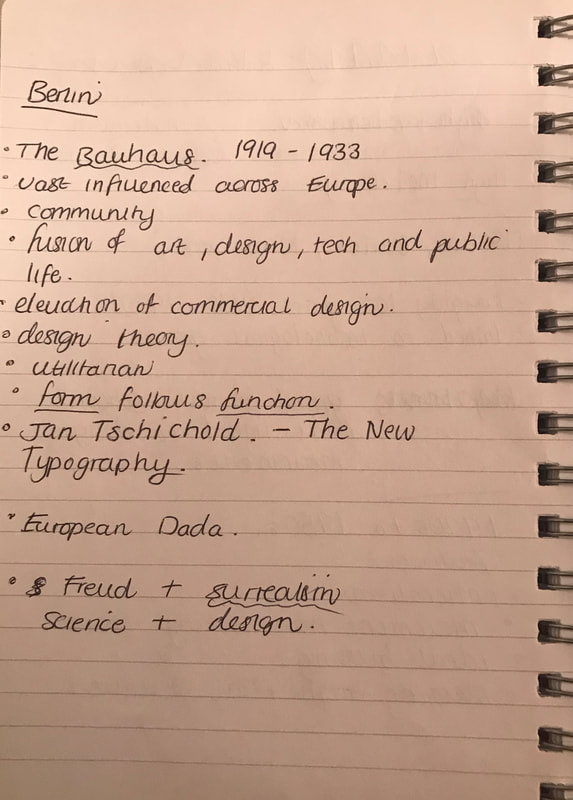 Berlin
• The Bauhaus. 1919 - 1933
• vast influenced across Europe.
• community
• fusion of art, design, tech and public
life.
• elevation of commercial design.
• design theory.
• utilitarian
• form follows function.
• Jan Tschichold. - The New
Typography.
• European Dada.
• Freud + surrealism
science + design.